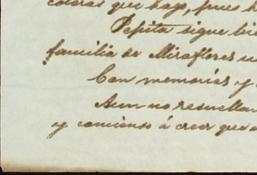 coleras que hago, pues h
Pepita sigue bie
familia de Miraflores u
Con memorias y
Aun no resuelta
y comienso á creer que